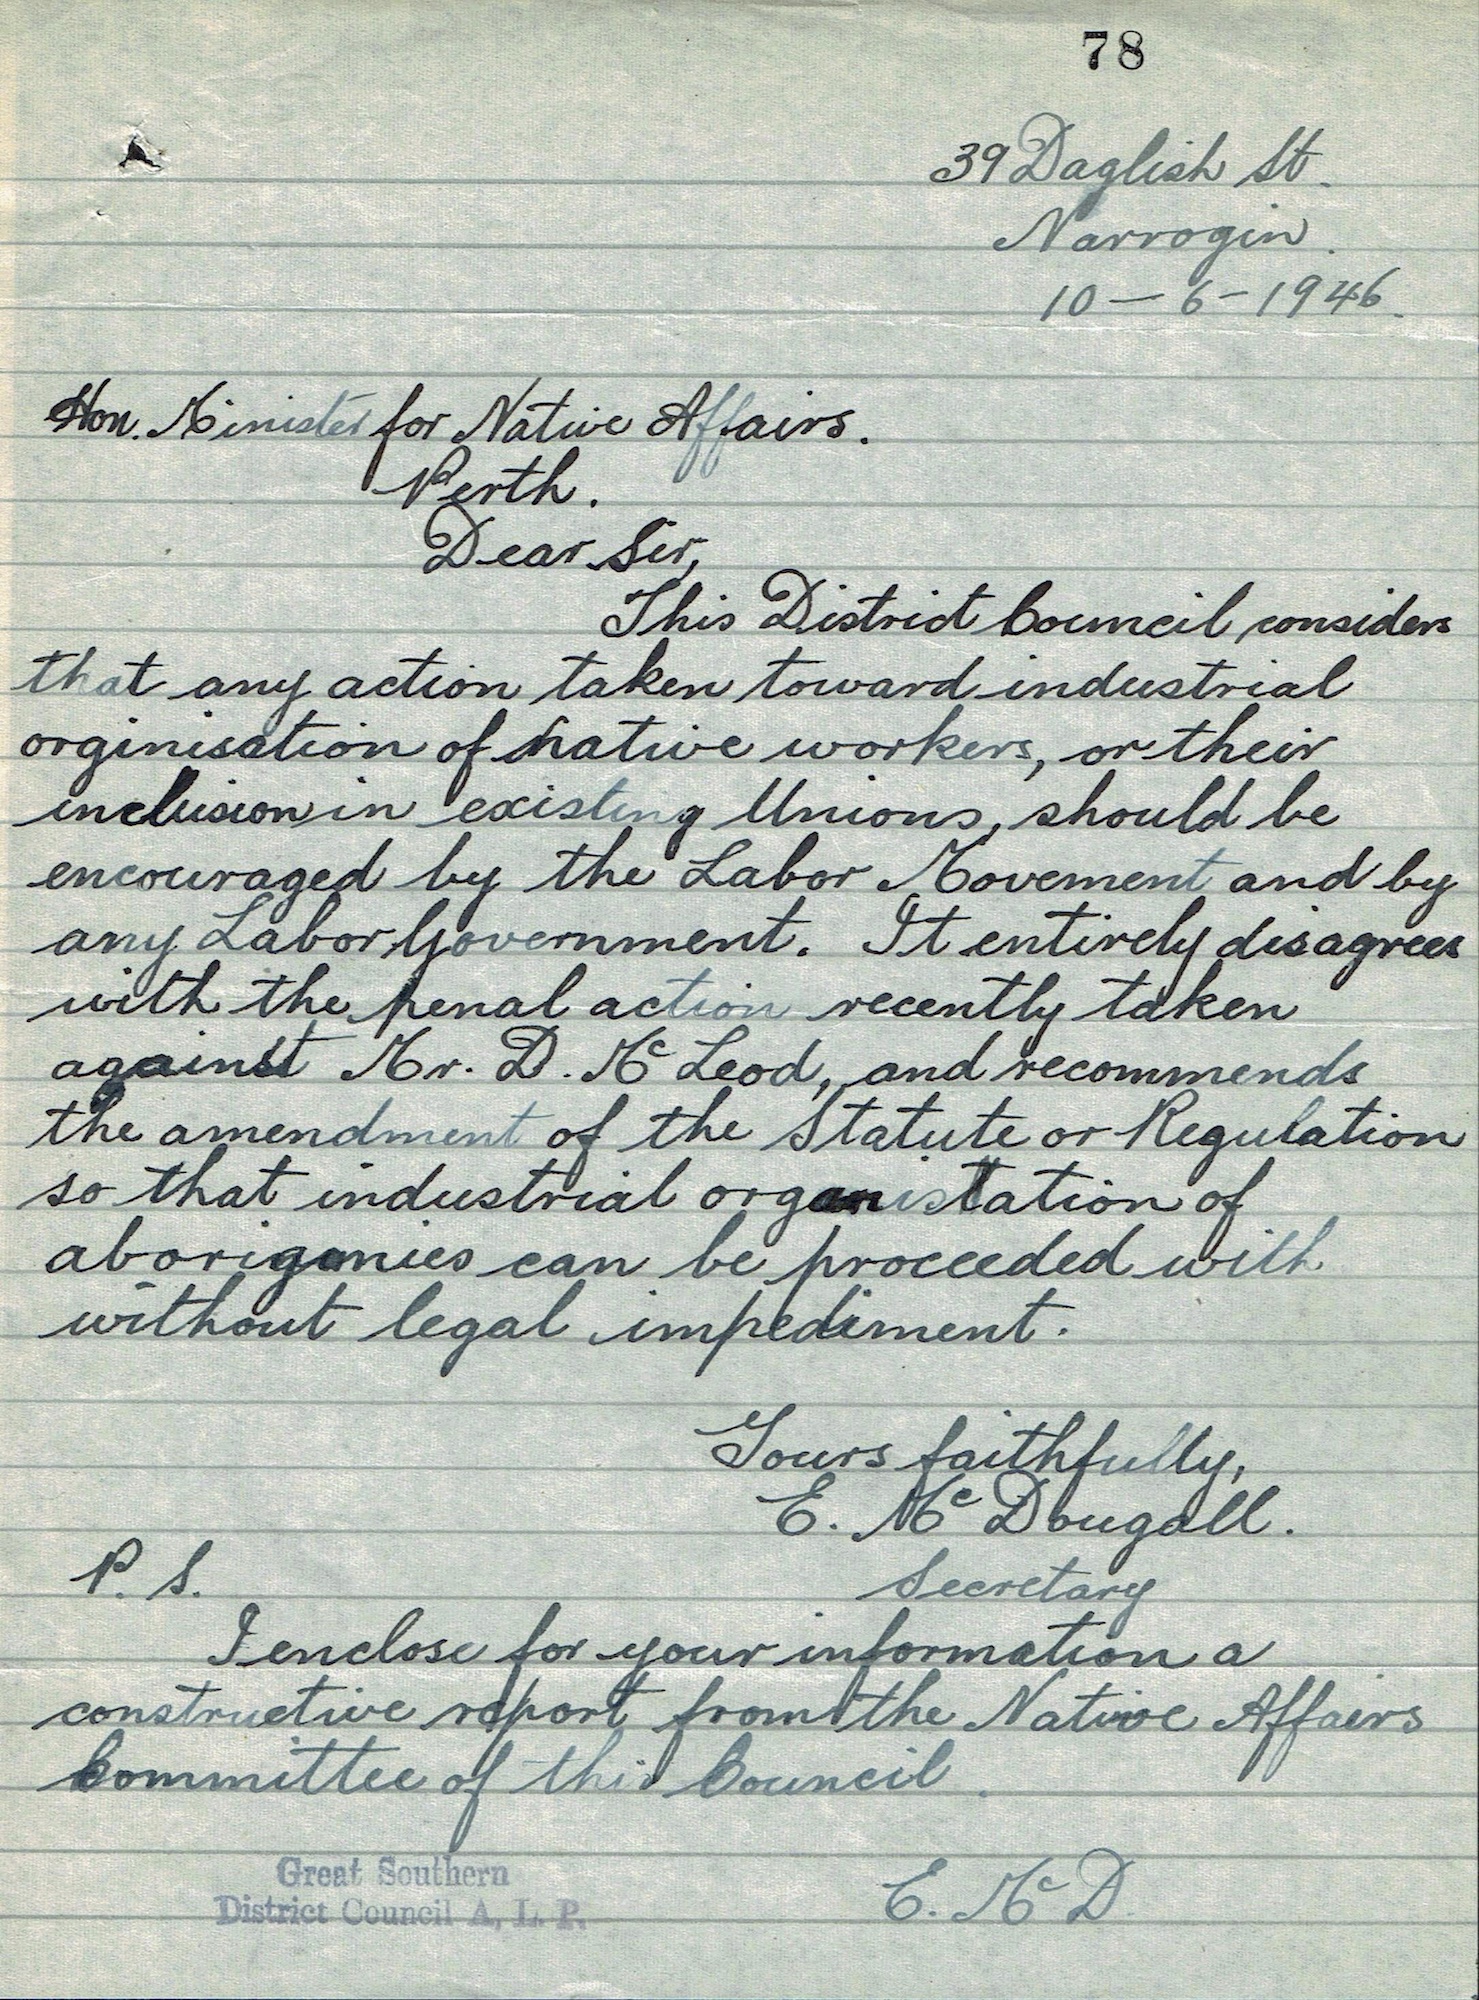 78
39 Daglish St.
Narrogin.
10-6-1946.
Hon. Minister for Native Affairs.
Perth.
Dear Sir,
This District Council considers
that any action taken toward industrial
orginisation of native workers, or their
inclusion in existing Unions, should be
encouraged by the Labor Movement and by
any Labor Government. It entirely disagrees
with the penal action recently taken
against Mr. D. McLeod, and recommends
the amendment of the Statute or Regulation
so that industrial organisation of
aborigonies can be proceeded with
without legal impediment.
Yours faithfully,
E. McDougall.
Secretary
P. S.
I enclose for your information a
constructive report from the Native Affairs
Committee of this Council.
Great Southern
District Council A, L. P.
E. McD.